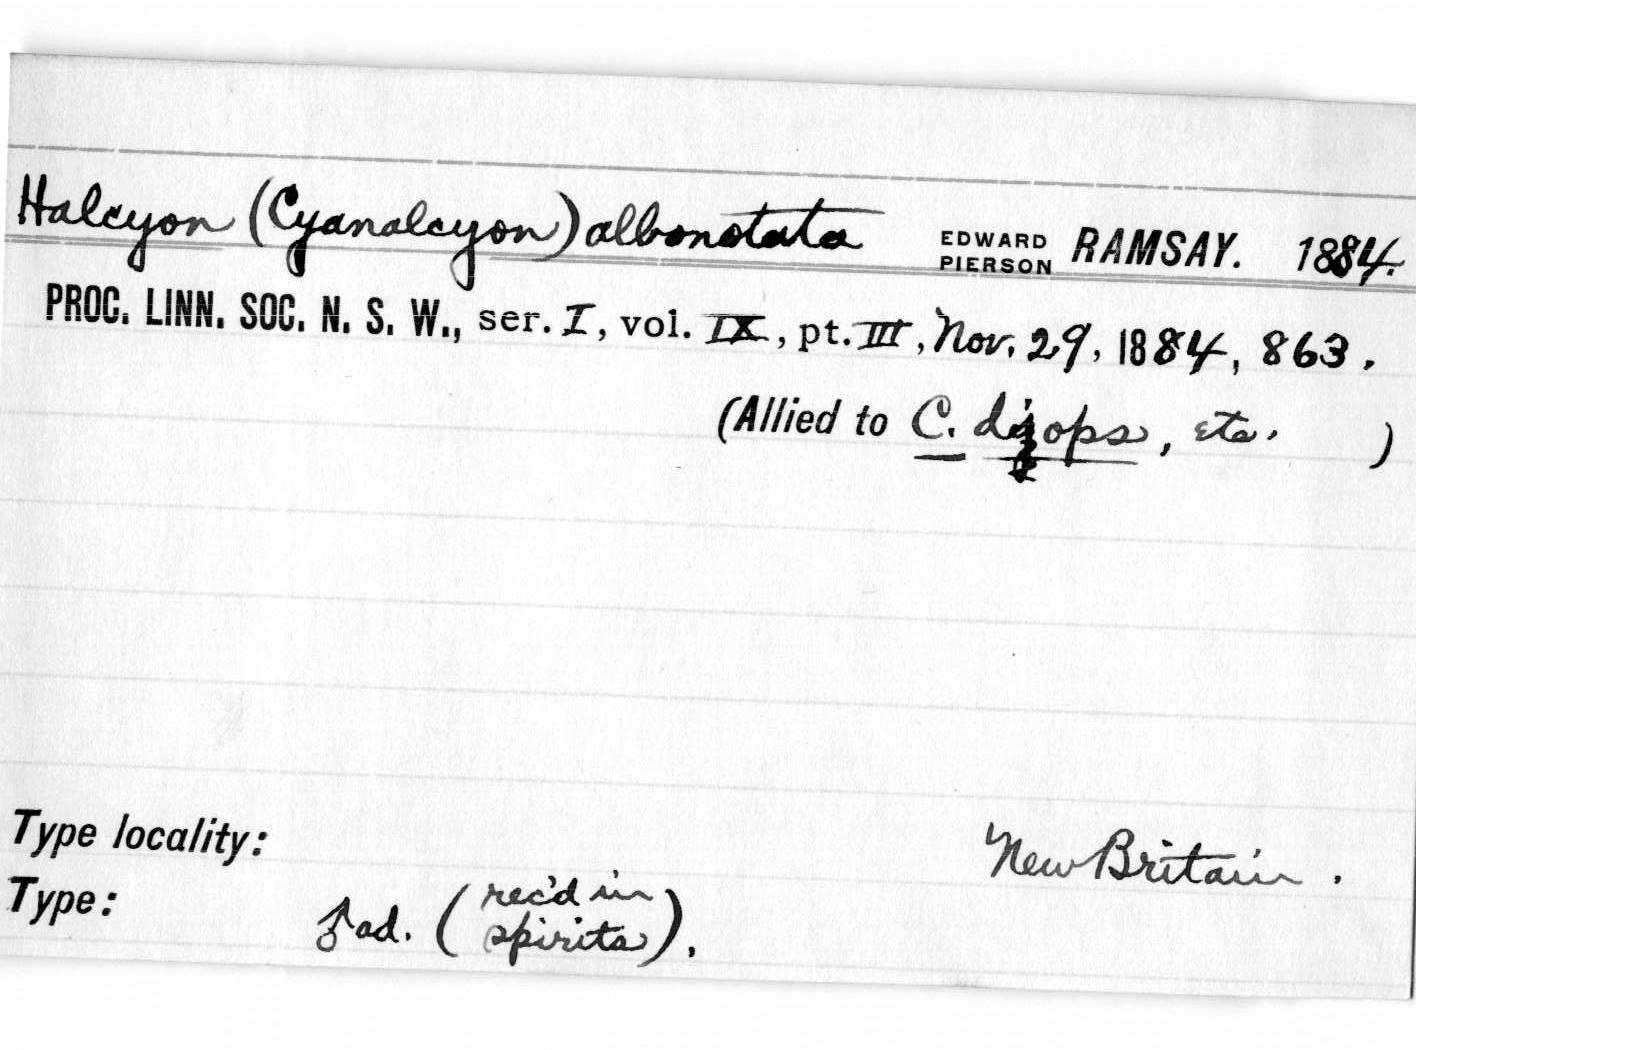 Halcyon (Cyanalcyon) albonotata EDWARD PIERSON RAMSAY. 1884.
PROC. LINN. SOC. N. S. W., ser. I, vol. IX, pt. III, Nov. 29, 1884, 863.
(Allied to C. diops, etc. )
Type locality: New Britain.
Type: ♂ ad. (rec'd in spirits).